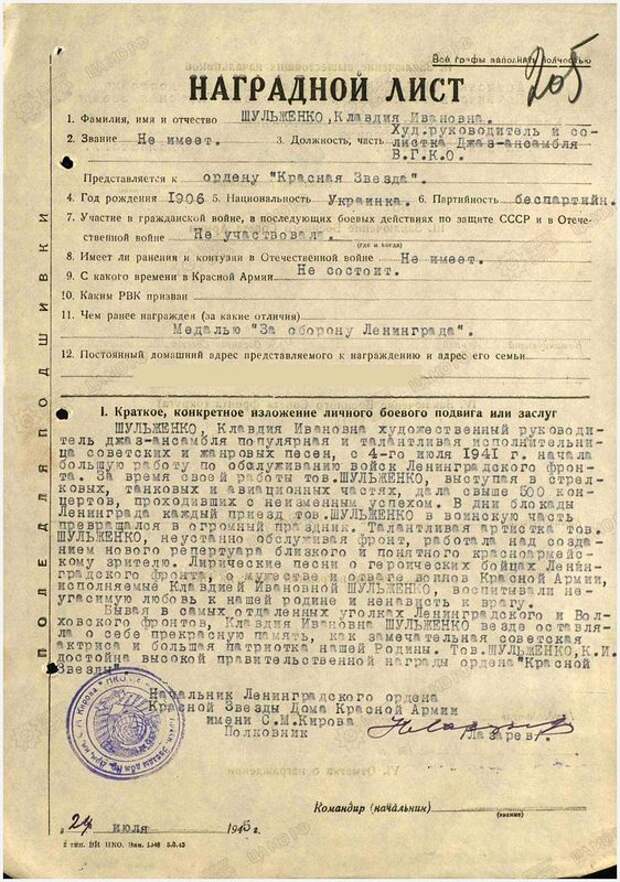 Все графы наполнять полностью
205
НАГРАДНОЙ ЛИСТ
1. Фамилия, имя и отчество ШУЛЬЖЕНКО, Клавдия Ивановна.
2. Звание Не имеет. 3. Должность, часть Худ.руководитель и со-
листка Джаз-ансамбля
В.Г.К.О.
Представляется к ордену "Красная Звезда".
4. Год рождения 1906 5. Национальность Украинка. 6. Партийность беспартийн.
7. Участие в гражданской войне, в последующих боевых действиях по защите СССР и в Отече-
ственной войне Не участвовала.
(где и когда)
8. Имеет ли ранения и контузии в Отечественной войне Не имеет.
9. С какого времени в Красной Армии Не состоит.
10. Каким РВК призван
11. Чем ранее награжден (за какие отличия)
Медалью "За оборону Ленинграда".
12. Постоянный домашний адрес представляемого к награждению и адрес его семьи
ПОЛЕ ДЛЯ ПОДШИВКИ
I. Краткое, конкретное изложение личного боевого подвига или заслуг
ШУЛЬЖЕНКО, Клавдия Ивановна художественный руководи-
тель джаз-ансамбля популярная и талантливая исполнительни-
ца советских и жанровых песен, с 4-го июля 1941 г. начала
большую работу по обслуживанию войск Ленинградского фрон-
та. За время своей работы тов.ШУЛЬЖЕНКО, выступая в стрел-
ковых, танковых и авиационных частях, дала свыше 500 кон-
цертов, проходивших с неизменным успехом. В дни блокады
Ленинграда каждый приезд тов.ШУЛЬЖЕНКО в воинскую часть
превращался в огромный праздник. Талантливая артистка тов.
ШУЛЬЖЕНКО, неустанно обслуживая фронт, работала над созда-
нием нового репертуара близкого и понятного красноармейс-
кому зрителю. Лирические песни о героических бойцах Ленин-
градского фронта, о мужестве и отваге воинов Красной Армии,
исполняемые Клавдией Ивановной ШУЛЬЖЕНКО, воспитывали не-
угасимую любовь к нашей родине и ненависть к врагу.
Бывая в самых отдаленных уголках Ленинградского и Вол-
ховского фронтов, Клавдия Ивановна ШУЛЬЖЕНКО везде оставля-
ла о себе прекрасную память, как замечательная советская
актриса и большая патриотка нашей Родины. Тов.ШУЛЬЖЕНКО,К.И.
достойна высокой правительственной награды ордена "Красной
Звезды"
Начальник Ленинградского ордена
Красной Звезды Дома Красной Армии
имени С.М.Кирова
Полковник Лазарев.
Командир (начальник)
(звание)
„24 июля 1945г.
2 тип. ВИ НКО. Зак. 1348 5.6.43